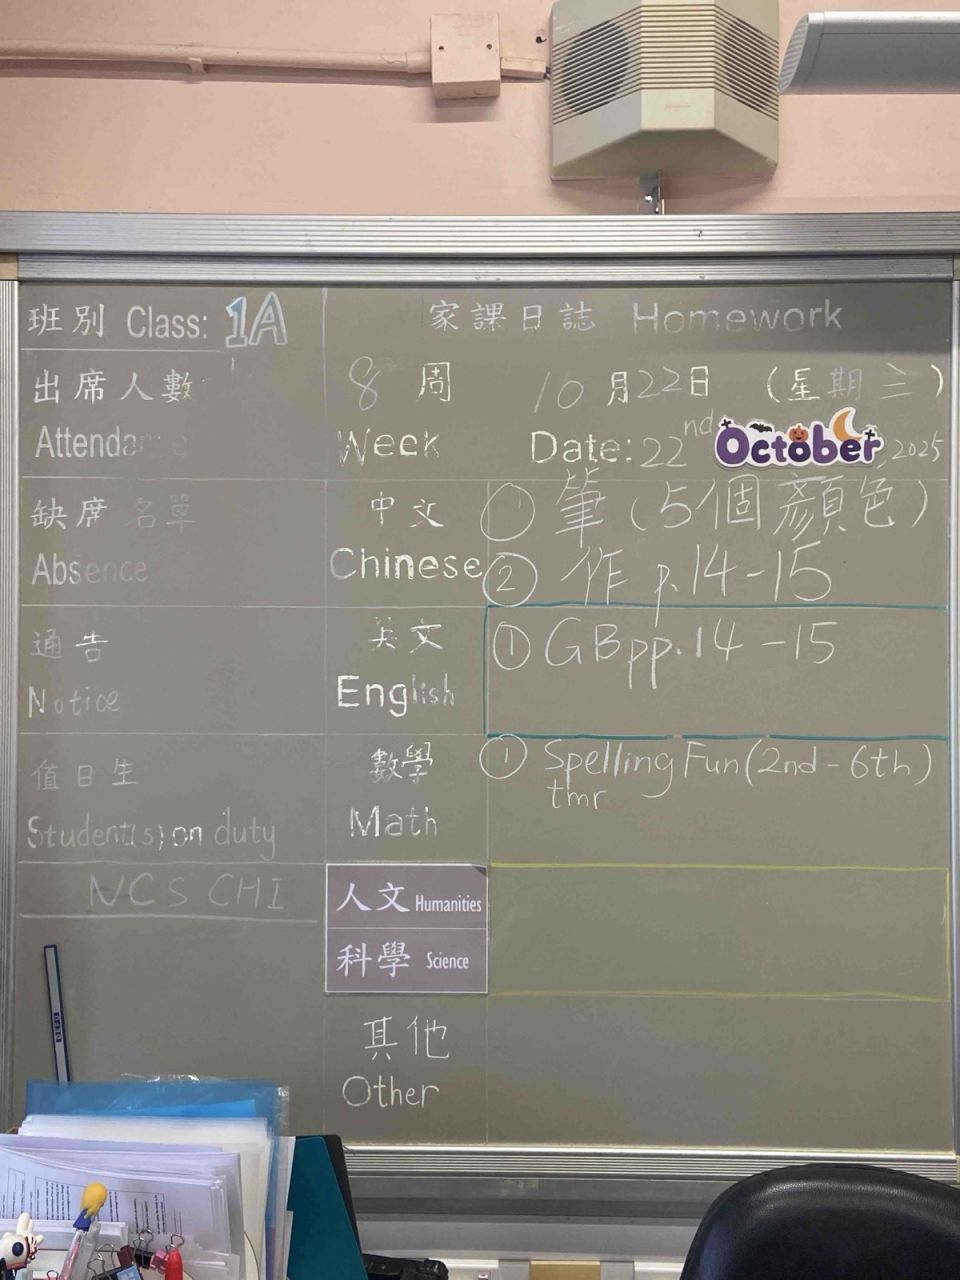 班別 Class: 1A
家課日誌 Homework
出席人數
8 周
10 月 22 日 (星期三)
Week
Date: 22nd October, 2025
缺席名單
中文
① 筆 (5個顏色)
Absence
Chinese
② 作 p.14-15
通告
英文
① GB pp.14-15
Notice
English
值日生
數學
① Spelling Fun (2nd-6th)
tmr
Student(s) on duty
Math
NCS CHI
人文 Humanities
科學 Science
其他
Other